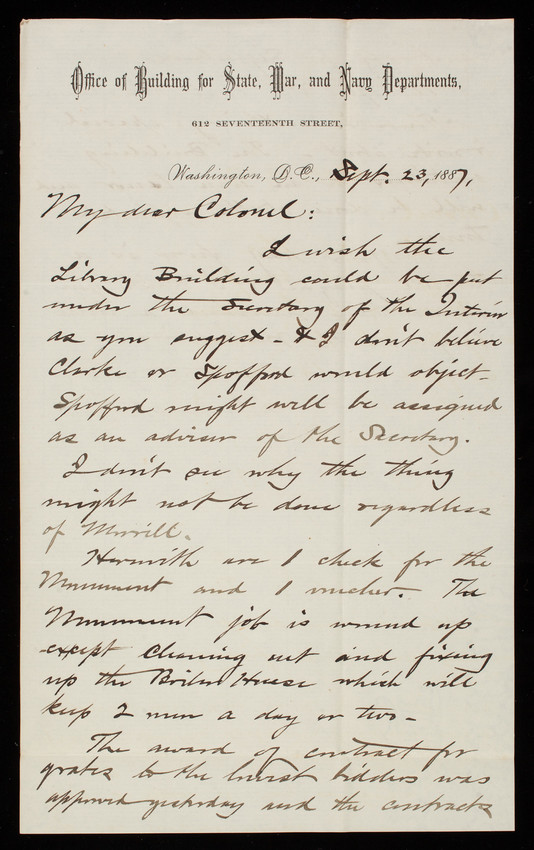 Office of Building for State, War, and Navy Departments,
612 SEVENTEENTH STREET,
Washington, D.C., Sept. 23, 1887,
My dear Colonel:
I wish the
Library Building could be put
under the Secretary of the Interior
as you suggest - & I don't believe
Clarke or Spofford would object -
Spofford might well be assigned
as an adviser of the Secretary.
I don't see why the thing
might not be done regardless
of Morrill.
Herewith are 1 check for the
Monument and 1 voucher. The
Monument job is wound up
except cleaning out and fixing
up the Boiler House which will
keep 2 men a day or two -
The award of contract for
grates to the lowest bidders was
approved yesterday and the contracts